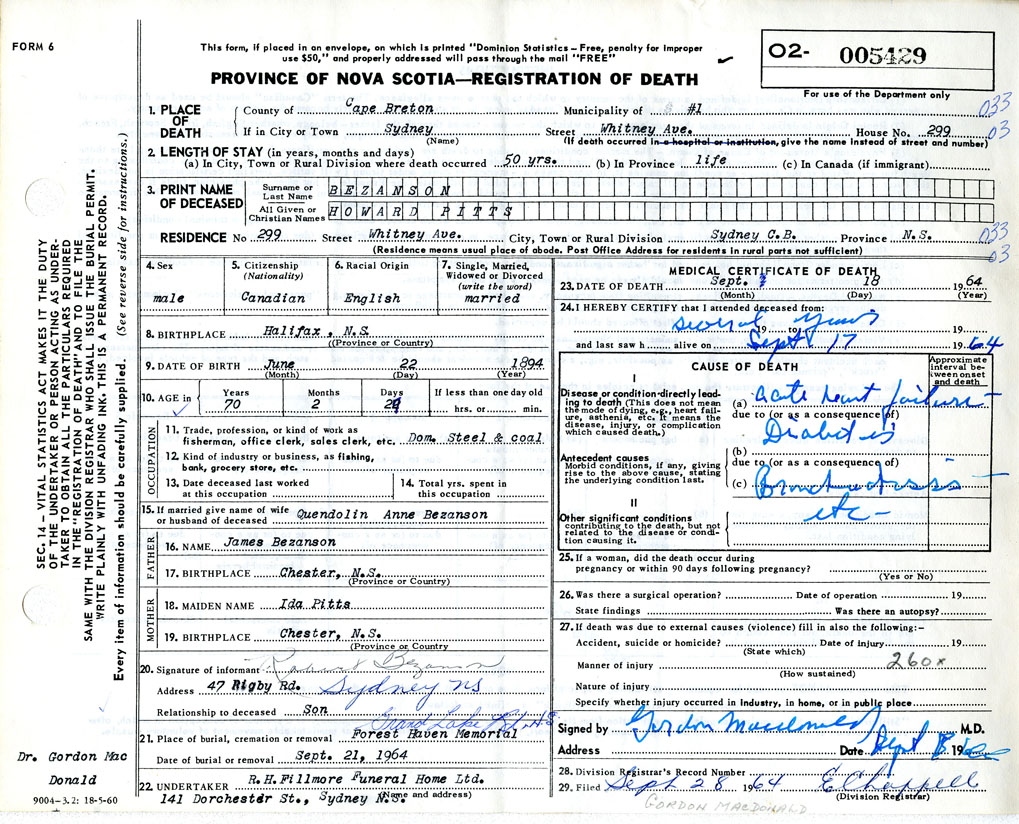 FORM 6
This form, if placed in an envelope, on which is printed "Dominion Statistics – Free, penalty for improper
use $50," and properly addressed will pass through the mail "FREE"
PROVINCE OF NOVA SCOTIA—REGISTRATION OF DEATH
O2- 005429
For use of the Department only
SEC. 14 – VITAL STATISTICS ACT MAKES IT THE DUTY
OF THE UNDERTAKER OR PERSON ACTING AS UNDER-
TAKER TO OBTAIN ALL THE PARTICULARS REQUIRED
IN THE "REGISTRATION OF DEATH" AND TO FILE THE
SAME WITH THE DIVISION REGISTRAR WHO SHALL ISSUE THE BURIAL PERMIT.
WRITE PLAINLY WITH UNFADING INK. THIS IS A PERMANENT RECORD.
Every item of information should be carefully supplied. (See reverse side for instructions.)
1. PLACE OF DEATH
County of Cape Breton Municipality of #1
033
If in City or Town Sydney Street Whitney Ave. House No. 299
03
(Name) (If death occurred in a hospital or institution, give the name instead of street and number)
2. LENGTH OF STAY (in years, months and days)
(a) In City, Town or Rural Division where death occurred 50 yrs. (b) In Province life (c) In Canada (if immigrant)
3. PRINT NAME OF DECEASED
Surname or Last Name BEZANSON
All Given or Christian Names HOWARD PITTS
RESIDENCE No 299 Street Whitney Ave. City, Town or Rural Division Sydney C.B. Province N.S.
033
03
(Residence means usual place of abode. Post Office Address for residents in rural parts not sufficient)
4. Sex
male
5. Citizenship
(Nationality)
Canadian
6. Racial Origin
English
7. Single, Married,
Widowed or Divorced
(write the word)
married
8. BIRTHPLACE Halifax, N.S.
(Province or Country)
9. DATE OF BIRTH June 22 1894
(Month) (Day) (Year)
10. AGE in
Years Months Days If less than one day old
70 2 hrs. or min.
OCCUPATION
11. Trade, profession, or kind of work as
fisherman, office clerk, sales clerk, etc. Dom. Steel & coal
12. Kind of industry or business, as fishing,
bank, grocery store, etc.
13. Date deceased last worked
at this occupation
14. Total yrs. spent in
this occupation
15. If married give name of wife
or husband of deceased Quendolin Anne Bezanson
FATHER
16. NAME James Bezanson
17. BIRTHPLACE Chester, N.S.
(Province or Country)
MOTHER
18. MAIDEN NAME Ida Pitts
19. BIRTHPLACE Chester, N.S.
(Province or Country
20. Signature of informant Bezanson
Address 47 Rigby Rd. Sydney NS
Relationship to deceased Son
Grand Lake Rd. N.S
21. Place of burial, cremation or removal Forest Haven Memorial
Date of burial or removal Sept. 21, 1964
22. UNDERTAKER R.H.Fillmore Funeral Home Ltd.
141 Dorchester St., Sydney N.S.
(Name and address)
Dr. Gordon Mac
Donald
9004-3.2: 18-5-60
MEDICAL CERTIFICATE OF DEATH
23. DATE OF DEATH Sept. 18 1964
(Month) (Day) (Year)
24. I HEREBY CERTIFY that I attended deceased from:
several years 19 to 19
and last saw h alive on Sept 17 1964
CAUSE OF DEATH
Approximate
interval be-
tween onset
and death
I
Disease or condition directly lead-
ing to death (This does not mean
the mode of dying, e.g., heart fail-
ure, asthenia, etc. It means the
disease, injury, or complication
which caused death.)
(a) acute heart failure
due to (or as a consequence of)
Diabetis
(b)
Antecedent causes
Morbid conditions, if any, giving
rise to the above cause, stating
the underlying condition last.
due to (or as a consequence of)
(c) Bronchiectasis
etc -
II
Other significant conditions
contributing to the death, but not
related to the disease or condi-
tion causing it.
25. If a woman, did the death occur during
pregnancy or within 90 days following pregnancy?
(Yes or No)
26. Was there a surgical operation? Date of operation 19
State findings Was there an autopsy?
27. If death was due to external causes (violence) fill in also the following:–
Accident, suicide or homicide? Date of injury 19
(State which)
Manner of injury 260x
(How sustained)
Nature of injury
Specify whether injury occurred in industry, in home, or in public place
Signed by Gordon Macdonald M.D.
Address Date Sept 18 19
28. Division Registrar's Record Number
29. Filed Sept 28 1964 E Chappell
(Division Registrar)
GORDON MACDONALD